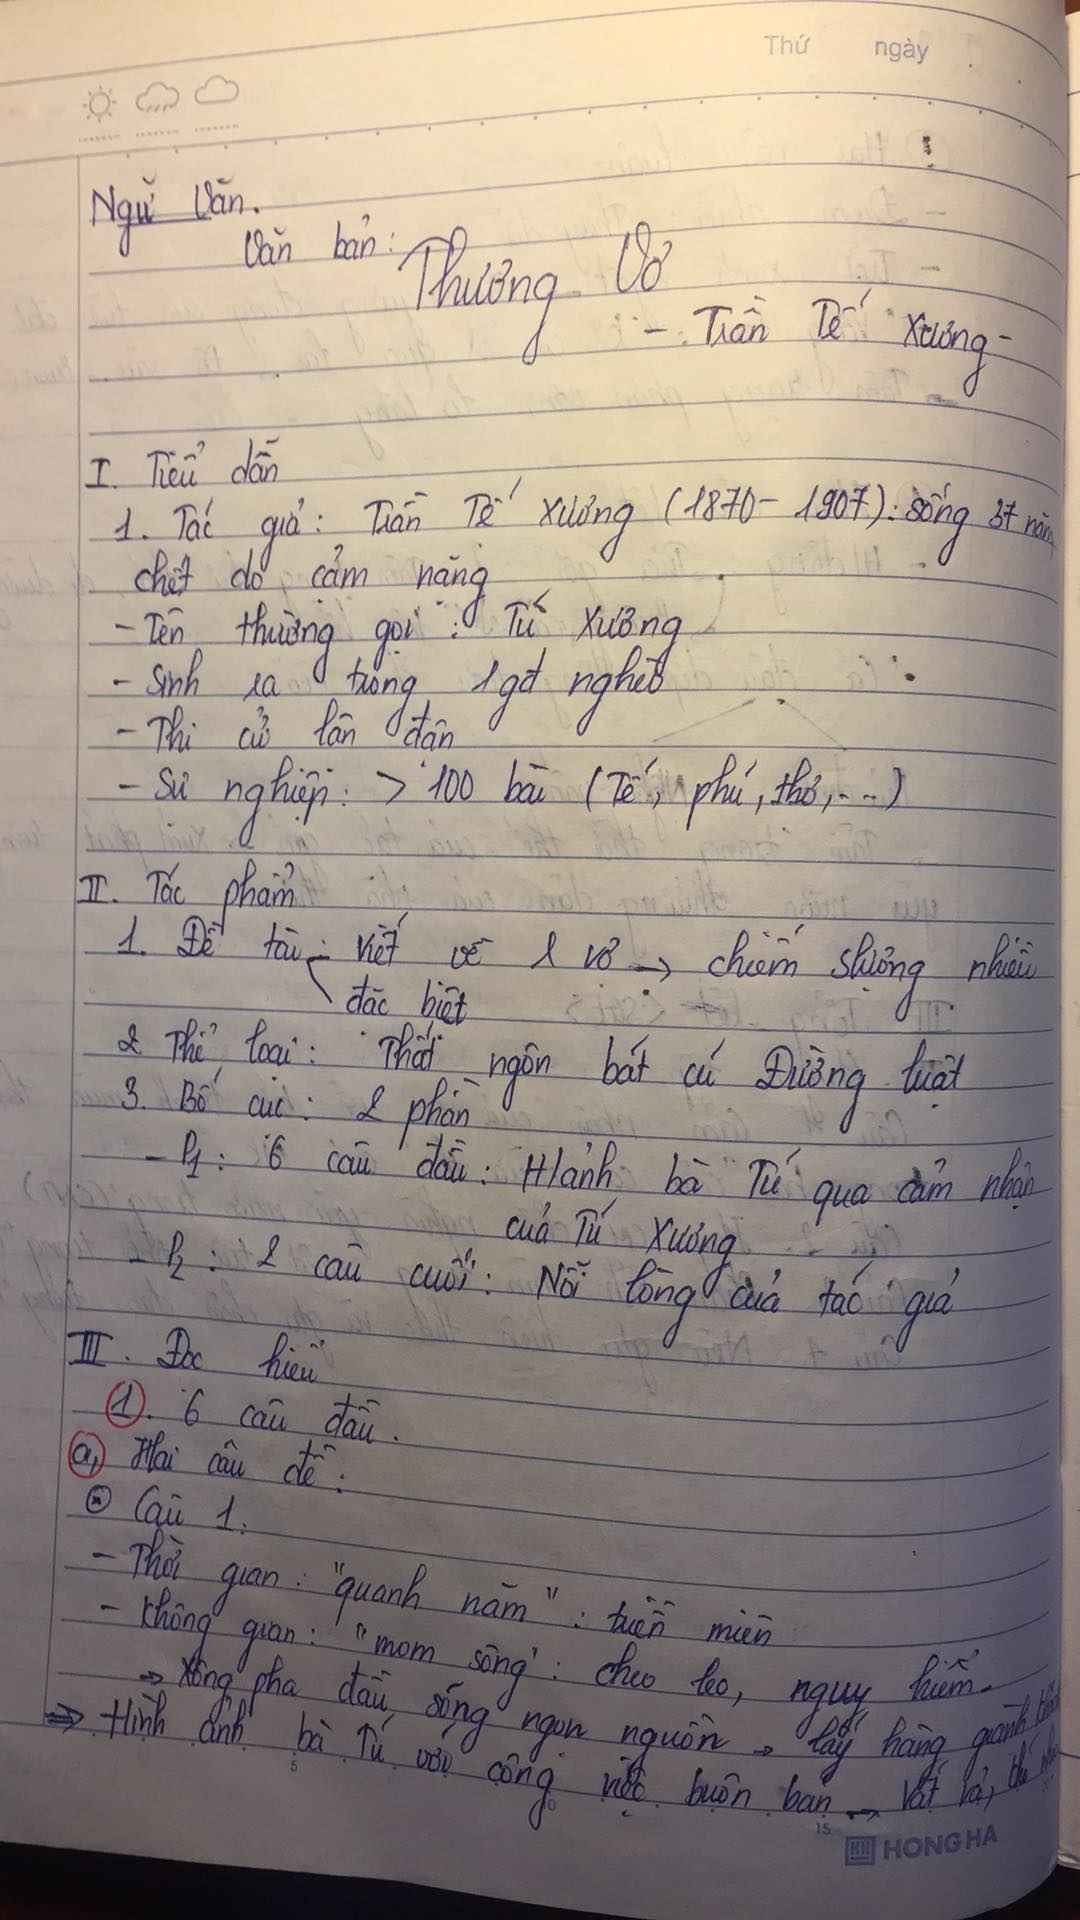 Thứ ngày
Ngữ Văn.
Văn bản: Thương Vợ
- Trần Tế Xương -
I. Tiểu dẫn
1. Tác giả: Trần Tế Xương (1870 - 1907): sống 37 năm
chết do cảm nặng
- Tên thường gọi: Tú Xương
- Sinh ra trong 1 gđ nghèo
- Thi cử lận đận
- Sự nghiệp: > 100 bài (Tế, phú, thơ, ...)
II. Tác phẩm
1. Đề tài - viết về vợ → chiếm slượng nhiều
đặc biệt
2 Thể loại: Thất ngôn bát cú Đường luật
3. Bố cục: 2 phần
- P1: 6 câu đầu: H/ảnh bà Tú qua cảm nhận
của Tú Xương
- P2: 2 câu cuối: Nỗi lòng của tác giả
III. Đọc hiểu
1. 6 câu đầu.
a, Hai câu đề:
Câu 1:
- Thời gian: "quanh năm": triền miên
- Không gian: "mom sông": cheo leo, nguy hiểm.
→ Xông pha đầu sóng ngọn nguồn → lấy hàng
⇒ Hình ảnh bà Tú với công việc buôn bán → vất vả,
5
15
HONG HA